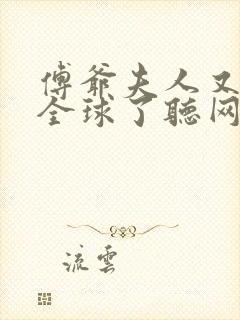 傅爺夫人又
全球了聽网
流雲